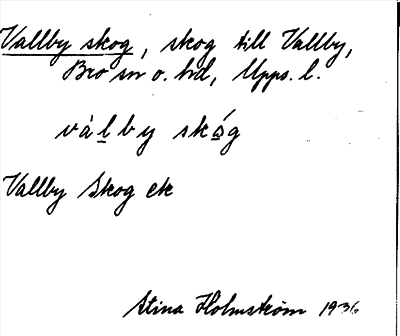 Vallby skog, skog till Vallby,
Bro sn o. hd, Upps. l.
vàlby skåg
Vallby Skog ek
Stina Holmström 1936